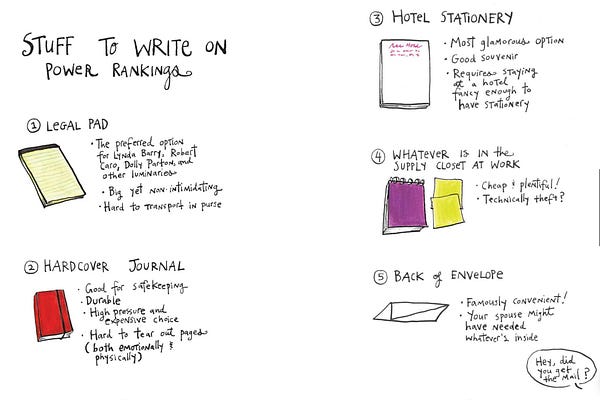 STUFF TO WRITE ON
POWER RANKINGS
① LEGAL PAD
• The preferred option
for Lynda Barry, Robert
Caro, Dolly Parton, and
other luminaries
• Big yet non-intimidating
• Hard to transport in purse
② HARDCOVER JOURNAL
• Good for safekeeping
• Durable
• High pressure and
expensive choice
• Hard to tear out pages
(both emotionally &
physically)
③ HOTEL STATIONERY
• Most glamorous option
• Good souvenir
• Requires staying
at a hotel
fancy enough to
have stationery
④ WHATEVER IS IN THE
SUPPLY CLOSET AT WORK
• Cheap & plentiful!
• Technically theft?
⑤ BACK of ENVELOPE
• Famously convenient!
• Your spouse might
have needed
whatever's inside
Hey, did
you get
the mail?